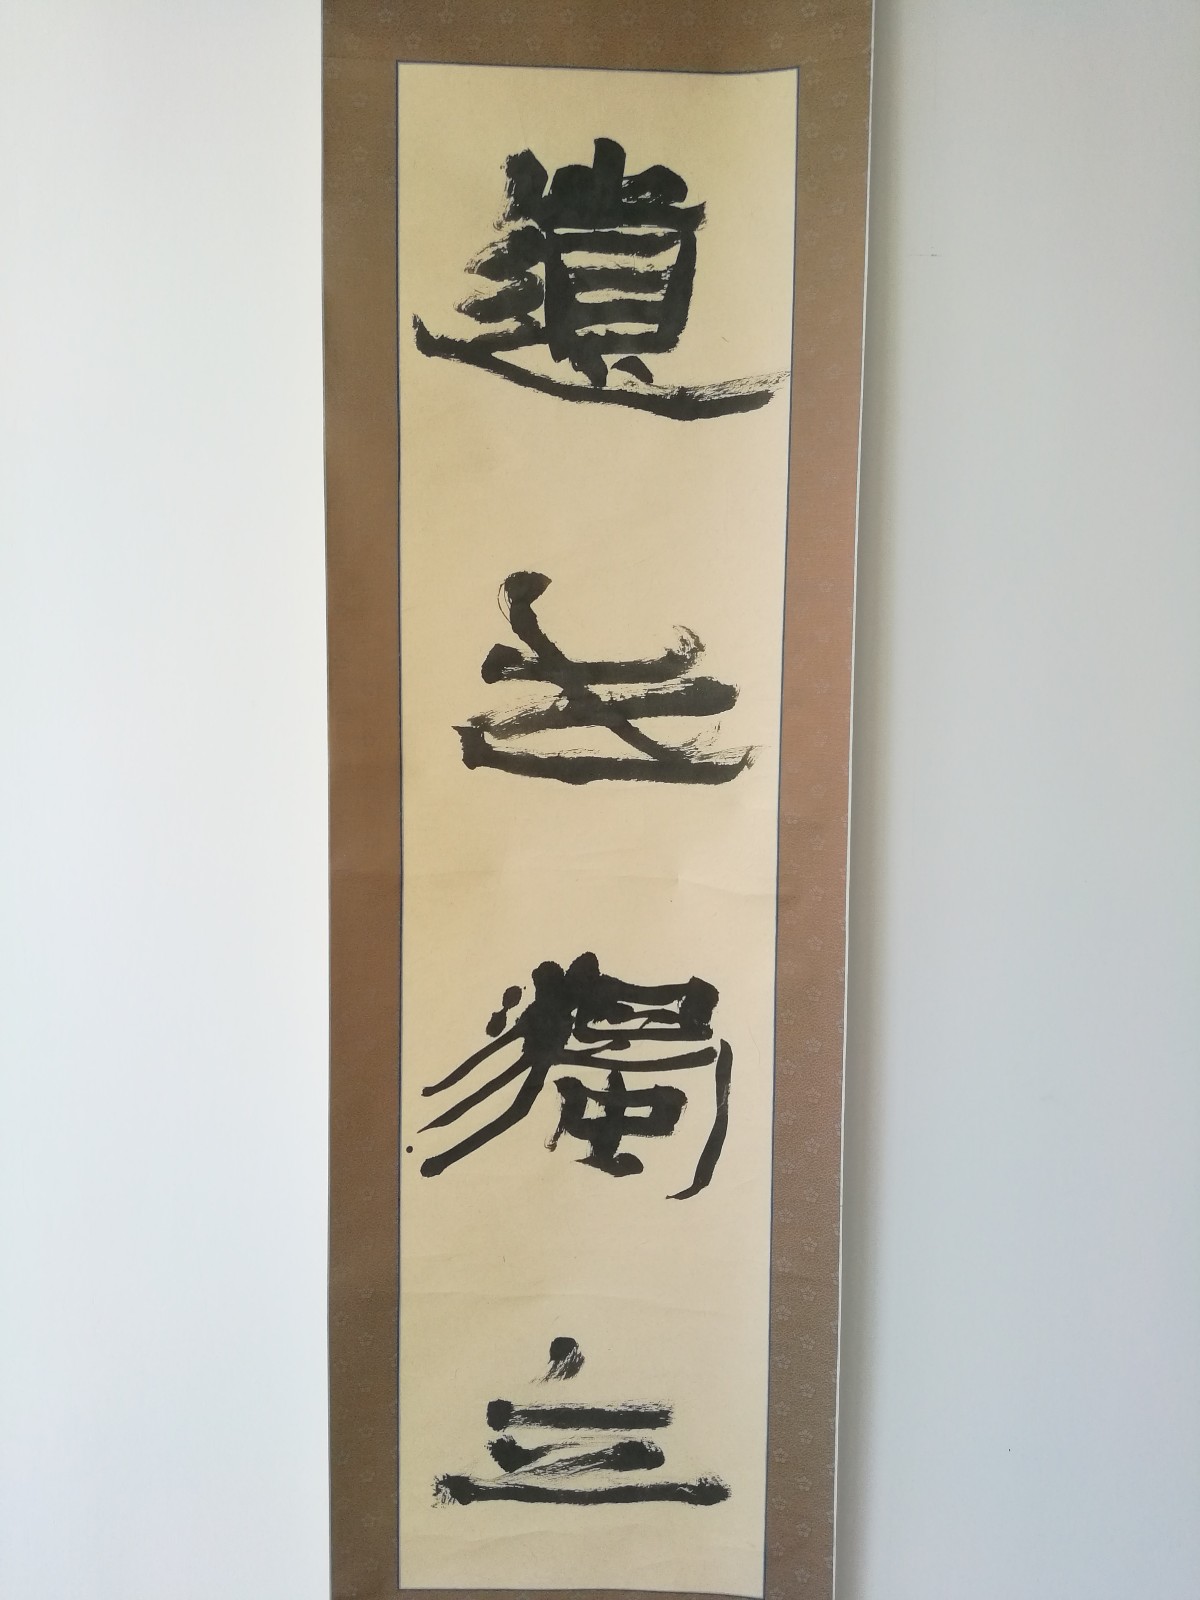 遺世獨立